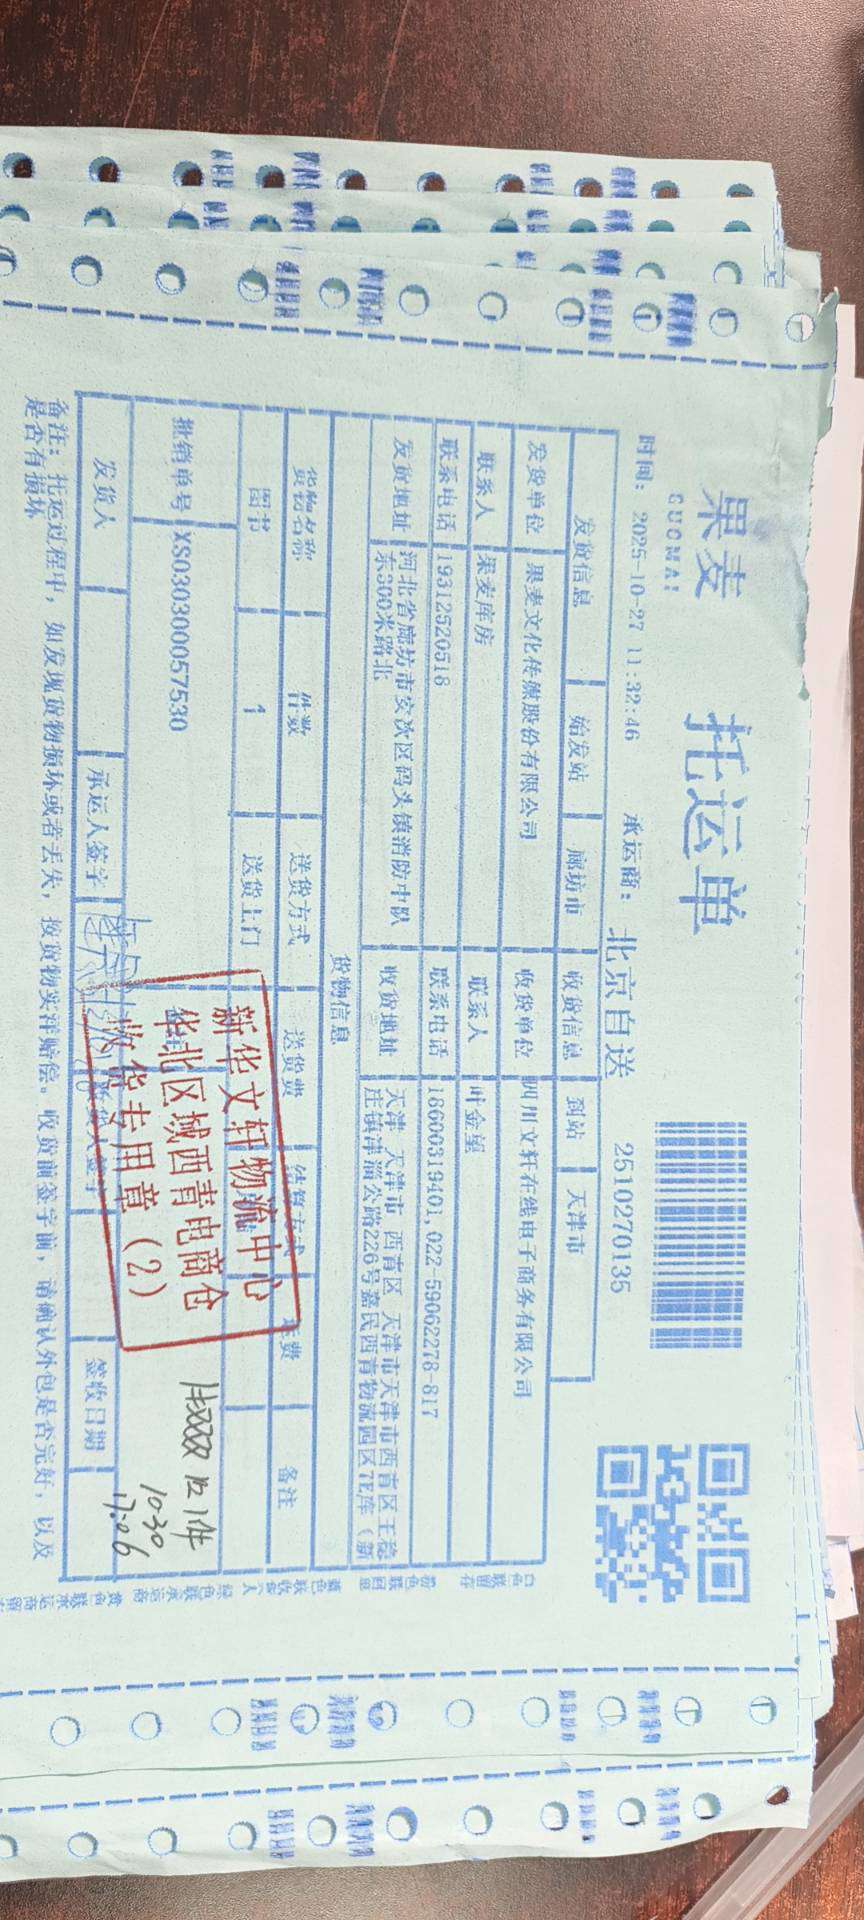 果麦
GUOMAI
托运单
时间: 2025-10-27 11:32:46
承运商: 北京自送
2510270135
发货信息 始发站 廊坊市 收货信息 到站 天津市
发货单位 果麦文化传媒股份有限公司 收货单位 四川文轩在线电子商务有限公司
联系人 果麦库房 联系人 叶金星
联系电话 19312520518 联系电话 18600319401,022-59062278-817
发货地址 河北省廊坊市安次区码头镇消防中队东300米路北 收货地址 天津 天津市 西青区 天津市天津市西青区王
庄镇津淄公路226号嘉民西青物流园区7E库(新
货物信息
货物名称 件数 送货方式 送货费 结算方式 运费 备注
图书 1 送货上门
批销单号 XS030300057530
发货人 承运人签字 收货人签字 签收日期
备注: 托运过程中, 如发现货物损坏或者丢失, 按货物实洋赔偿。收货前签字前, 请确认外包是否完好, 以及
是否有损坏
新华文轩物流中心
华北区域西青电商仓
收货专用章(2)
1件
10.30
17:06